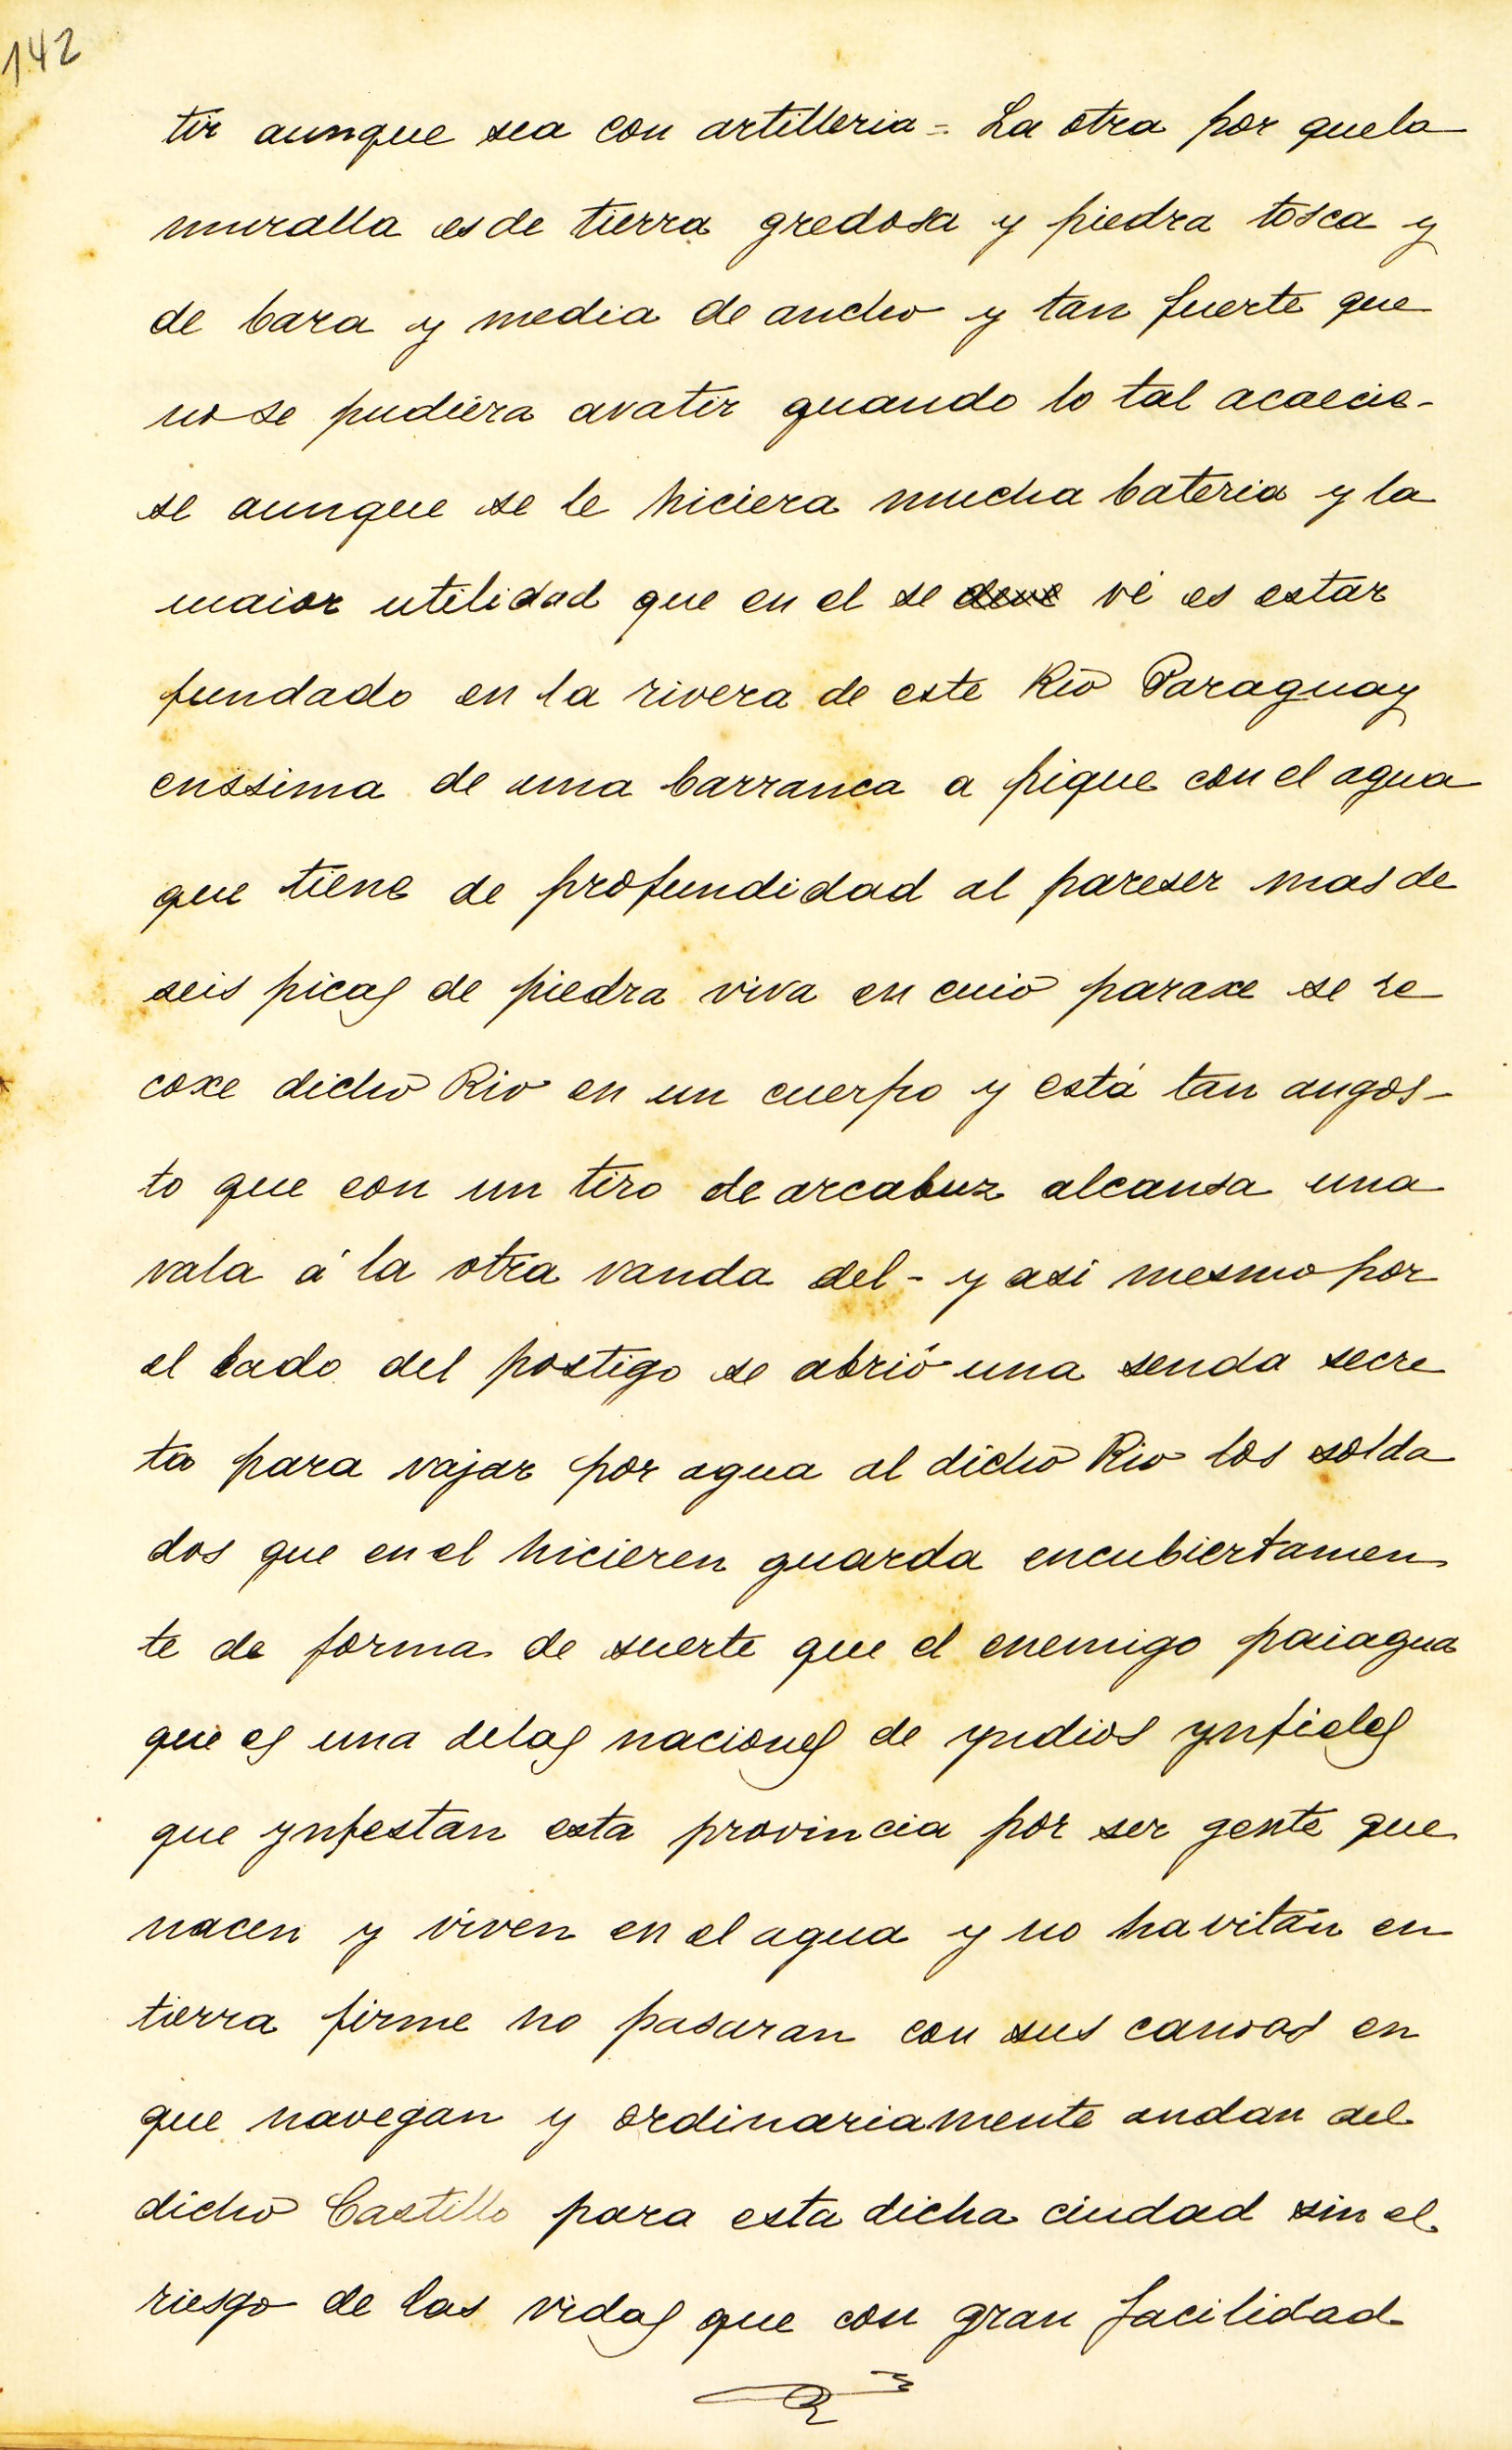 142
tir aunque sea con artilleria = La otra por quela
muralla es de tierra gredosa y piedra tosca y
de bara y media de ancho y tan fuerte que
no se pudiera avatir quando lo tal acaecie-
se aunque se le hiciera mucha bateria y la
maior utilidad que en el se deve vé es estar
fundado en la rivera de este Rio Paraguay
enssima de una barranca a pique con el agua
que tiene de profundidad al pareser mas de
seis picas de piedra viva en cuio paraxe se re
coxe dicho Rio en un cuerpo y está tan angos-
to que con un tiro de arcabuz alcansa una
vala á la otra vanda del - y asi mesmo por
el lado del postigo se abrió una senda secre
ta para vajar por agua al dicho Rio los solda
dos que en el hicieren guarda encubiertamen
te de forma de suerte que el enemigo paiagua
que es una delas naciones de yndios ynfieles
que ynfestan esta provincia por ser gente que
nacen y viven en el agua y no havitan en
tierra firme no pasaran con sus canoas en
que navegan y ordinariamente andan del
dicho Castillo para esta dicha ciudad sin el
riesgo de las vidas que con gran facilidad